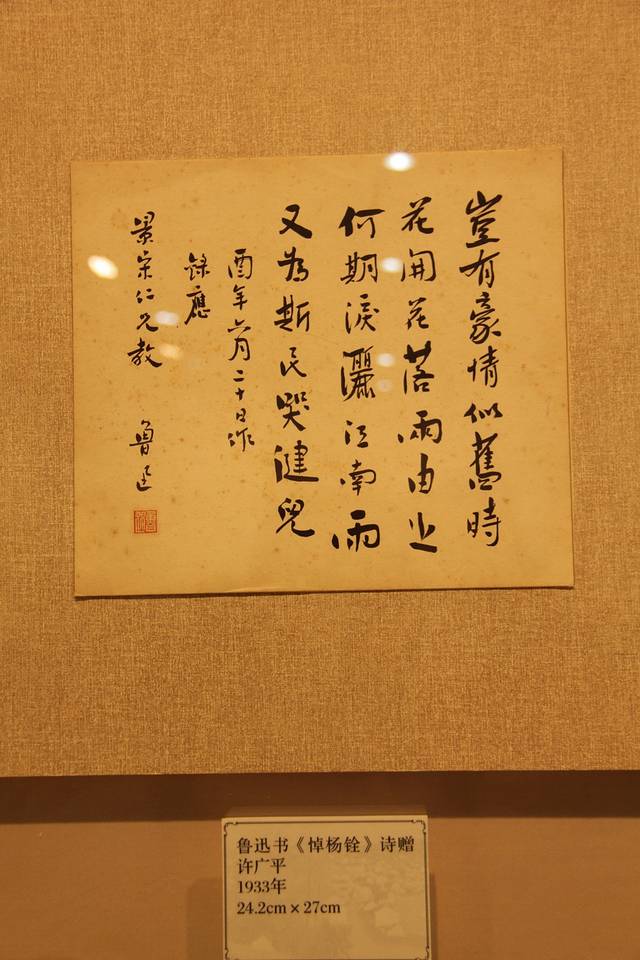 豈有豪情似舊時
花開花落兩由之
何期淚灑江南雨
又為斯民哭健兒
酉年六月二十日作
錄應
景宋仁兄教 魯迅
鲁迅书《悼杨铨》诗赠
许广平
1933年
24.2cm×27cm